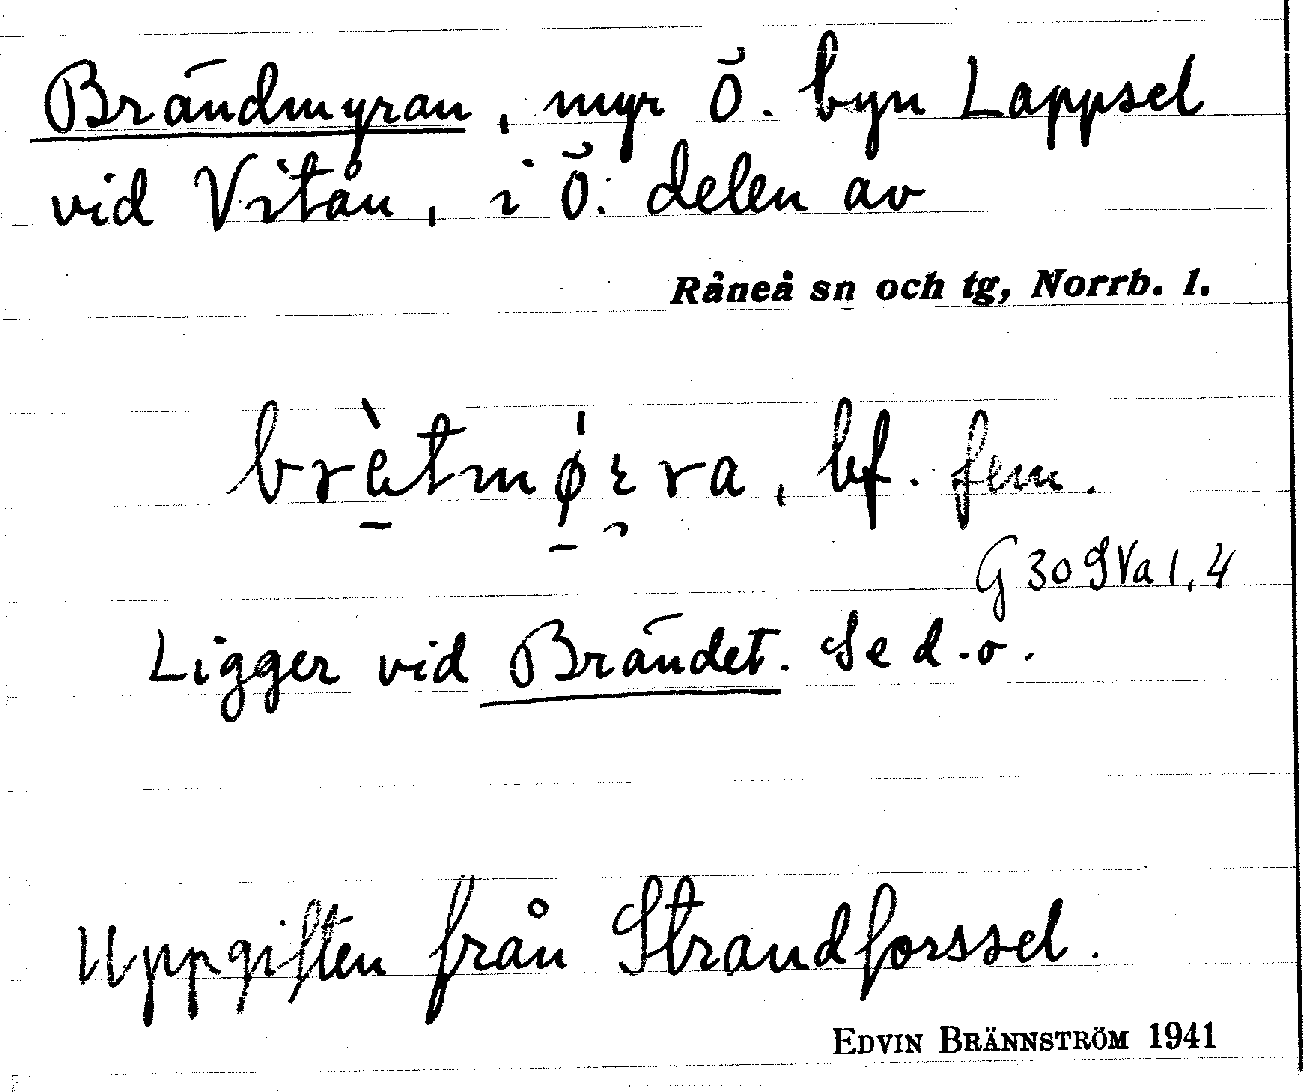 Brändmyran, myr Ö. byn Lappsel
vid Vitån, i Ö. delen av
Råneå sn och tg, Norrb. l.
bf. fem.
G 30 9 Va 1, 4
Ligger vid Brändet. Se d.o.
Uppgiften från Strandforssel.
EDVIN BRÄNNSTRÖM 1941